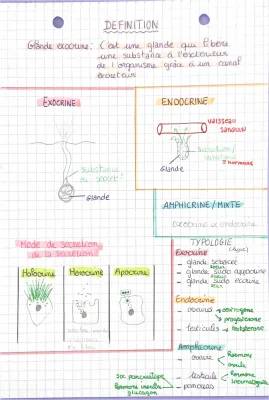 DEFINITION
Glande exocrine: C'est une glande qui libère
une substance à l'extérieur
de l'organisme grâce à un canal
excréteur
EXOCRINE
substance
Glande
ENDOCRINE
VAISSEAU
SANGUIN
hormones
Glande
AMPHICRINE/MIXTE
exocrine + endocrine
Mode de secretion
de la secretion
Holocrine
Merocrine
Apocrine
TYPOLOGIE
Exocrine
- glande sebacée
- glande sudo apocrine
- glande sudo eccrine
Endocrine
- ovaires → oestrogene
→ progesterone
- testicules → testosterone
Amphicrine
- ovaire → hormone
→ ovule
- testicule → hormone
→ spermatozoide
- pancreas
Suc pancreatique
Hormone insuline
glucagon